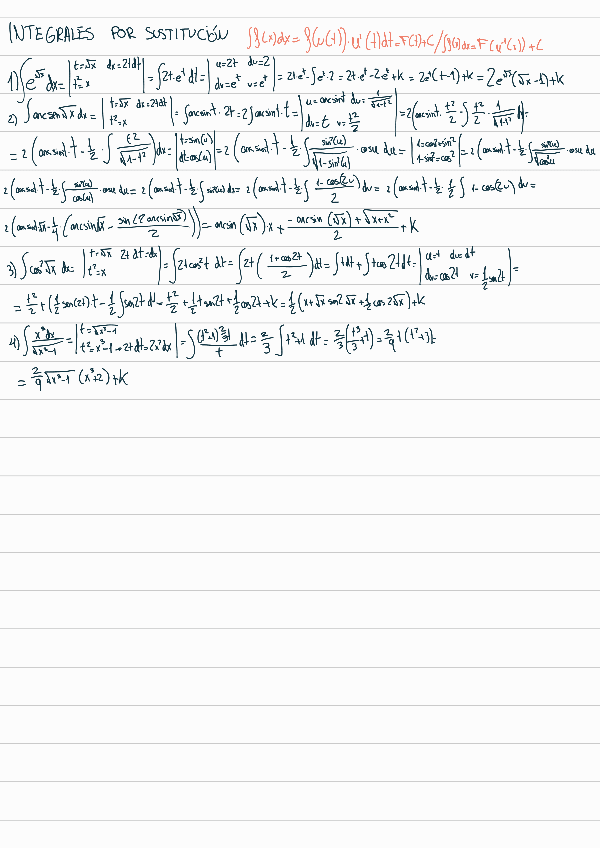 INTEGRALES POR SUSTITUCIÓN ∫f(x)dx = f(u(t))·u'(t)dt = F(t)+C / ∫f(x)dx = F(u⁻¹(x))+C
1) ∫e^√x dx = |t=√x dx=2tdt t²=x| = ∫2t·e^t dt = |u=2t du=2 dv=e^t v=e^t| = 2te^t - ∫e^t·2 = 2t·e^t - 2e^t + K = 2e^t(t-1)+K = 2e^√x(√x-1)+K
2) ∫arcsen√x dx = |t=√x dx=2tdt t²=x| = ∫arcsint·2t = 2∫arcsint·t = |u=arcsint du=1/√(1-t²) dv=t v=t²/2| = 2(arcsint·t²/2 - ∫t²/2·1/√(1-t²))=
= 2(arcsint·t - 1/2·∫t²/√(1-t²))dx = |t=sin(u) dt=cos(u)| = 2(arcsint·t - 1/2∫sin²(u)/√(1-sin²(u))·cosu du = |1=cos²+sin² 1-sin²=cos²| = 2(arcsint·t - 1/2∫sin²(u)/√cos²u·cosu du
2(arcsint·t - 1/2∫sin²(u)/cos(u)·cosu du = 2(arcsint·t - 1/2∫sin²(u)du = 2(arcsint·t - 1/2∫(1-cos(2u))/2 du = 2(arcsint·t - 1/2·1/2∫1-cos(2u) du =
2(arcsint√x - 1/4(arcsin√x - sin(2arcsin√x)/2)) = arcsin(√x)·x + (-arcsin(√x)+√(x+x²))/2 + K
3) ∫cos²√x dx = |t=√x 2tdt=dx t²=x| = ∫2tcos²t dt = ∫2t((1+cos2t)/2)dt = ∫tdt + ∫tcos2tdt = |u=t du=dt dv=cos2t v=1/2sin2t| =
= t²/2 + (1/2sen(2t)·t - 1/2∫sin2t dt = t²/2 + 1/2t sen2t + 1/2cos2t + K = 1/2(x+√x sen2√x + 1/2cos2√x)+K
4) ∫x³dx/√(x³-1) = |t=√(x³-1) t²=x³-1→2tdt=2x²dx| = ∫(t²+1)2/3t/t dt = 2/3∫t²+1 dt = 2/3(t³/3+t) = 2/9t(t²+3)t
= 2/9√(x³-1)(x³+2)+K